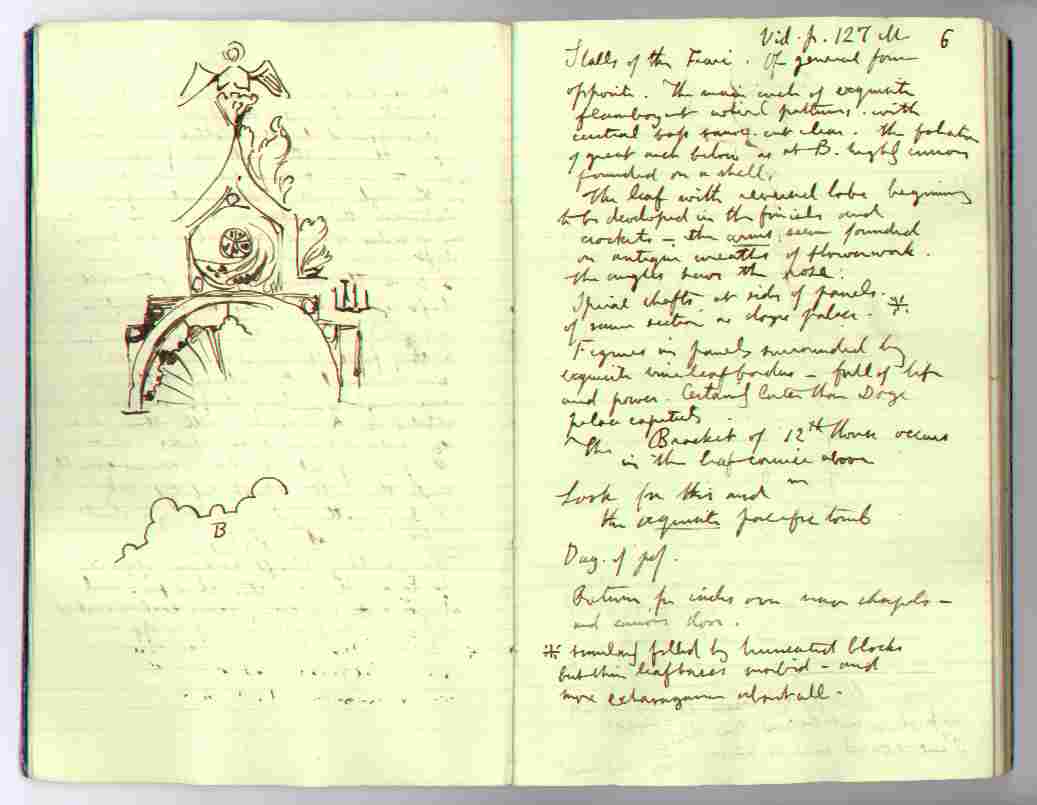 B
Vid. p. 127 M 6
Stalls of the Frari. Of general form
opposite. The main arch of exquisite
flamboyant patterns. with
central boss cut clear. The foliation
of great arch below as at B. highly curious
founded on a shell.
The leaf with reversed lobe beginning
to be developed in the finials and
crockets - the arms, seem founded
on antique wreaths of flowerwork.
the angles the rose.
Spiral shafts at sides of panels.
of same section as doges palace. *
Figures in panels surrounded by
exquisite vineleaf borders - full of life
and power. Certainly later than Doge
palace capitals
The Bracket of 12th House occurs
in the leaf cornice above
Look for this and
the exquisite tomb
Dag. of
Return for over chapels -
and door.
* similarly filled by truncated blocks
but their leafiness morbid - and
more extravagant about all.